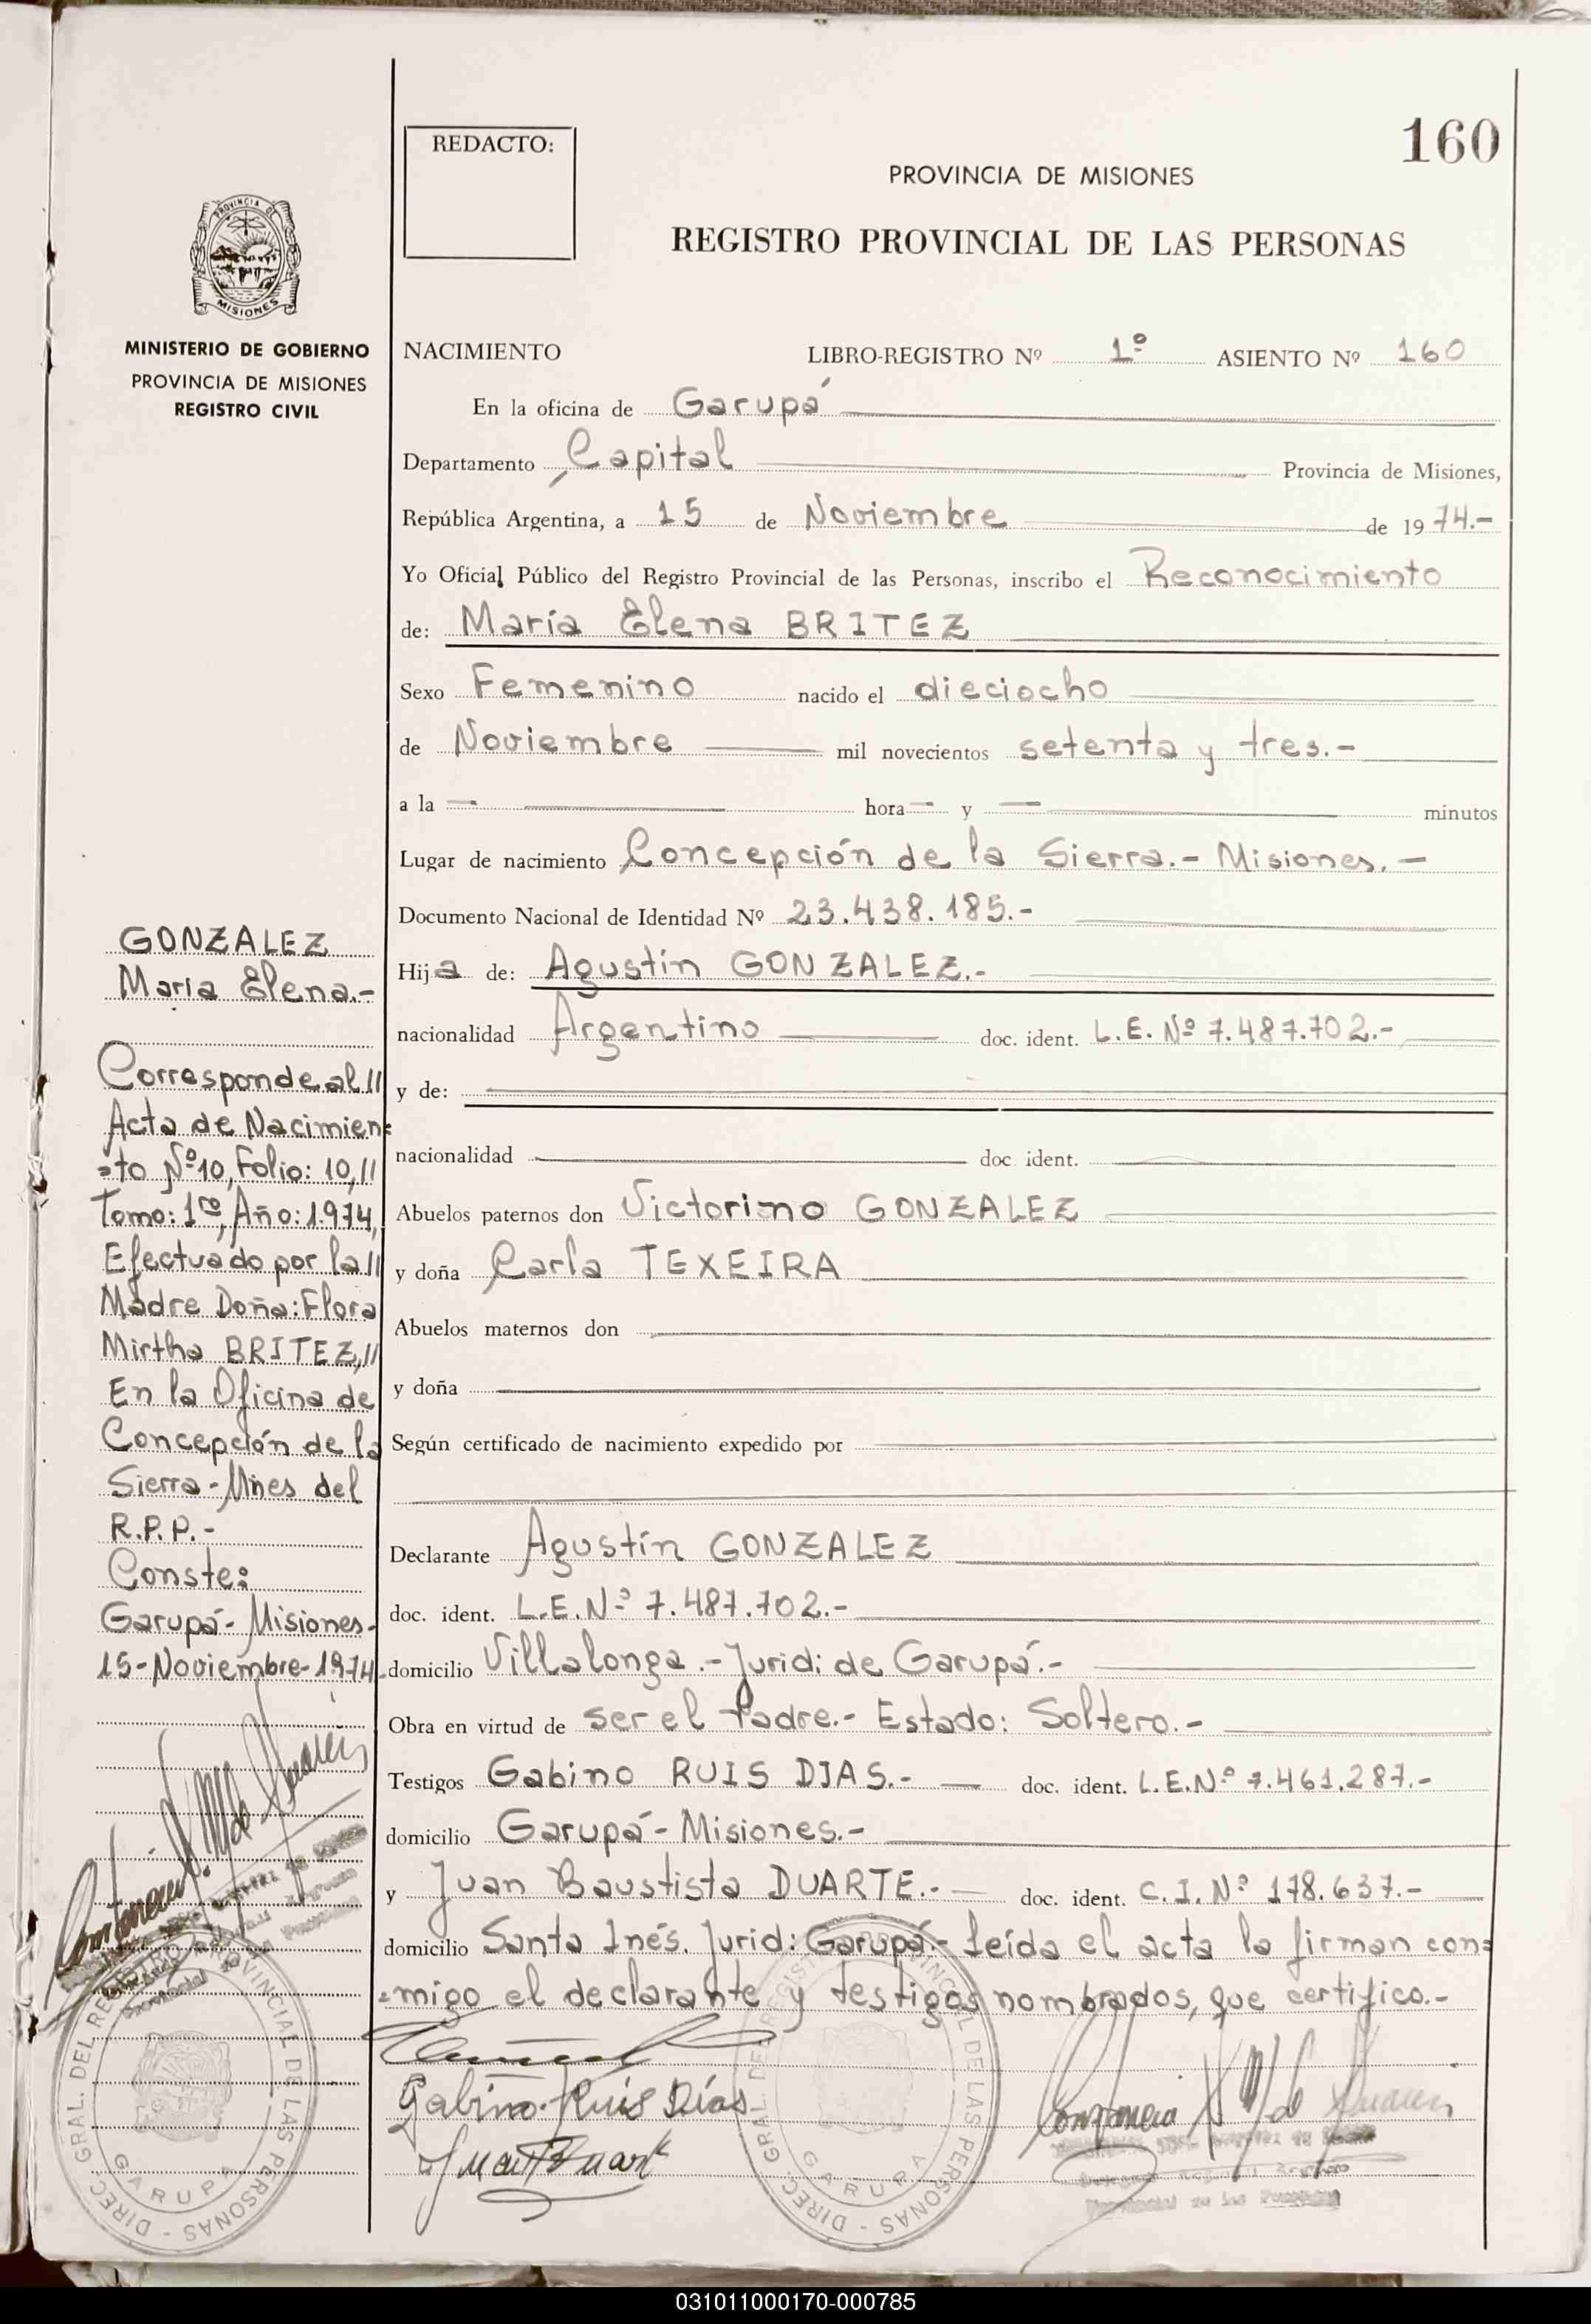 160
REDACTO:
PROVINCIA DE MISIONES
REGISTRO PROVINCIAL DE LAS PERSONAS
PROVINCIA DE
MISIONES
MINISTERIO DE GOBIERNO
PROVINCIA DE MISIONES
REGISTRO CIVIL
NACIMIENTO LIBRO-REGISTRO Nº 1º ASIENTO Nº 160
En la oficina de Garupá
Departamento Capital Provincia de Misiones,
República Argentina, a 15 de Noviembre de 1974.-
Yo Oficial Público del Registro Provincial de las Personas, inscribo el Reconocimiento
de: María Elena BRITEZ
Sexo Femenino nacido el dieciocho
de Noviembre mil novecientos setenta y tres.-
a la — hora — y — minutos
Lugar de nacimiento Concepción de la Sierra.- Misiones.-
Documento Nacional de Identidad Nº 23.438.185.-
Hija de: Agustín GONZALEZ.-
nacionalidad Argentino doc. ident. L.E. Nº 7.487.702.-
y de:
nacionalidad doc. ident.
Abuelos paternos don Victorino GONZALEZ
y doña Carla TEXEIRA
Abuelos maternos don
y doña
Según certificado de nacimiento expedido por
Declarante Agustín GONZALEZ
doc. ident. L.E.Nº 7.487.702.-
domicilio Villalonga.- Jurid: de Garupá.-
Obra en virtud de ser el Padre.- Estado: Soltero.-
Testigos Gabino RUIS DIAS.- doc. ident. L.E.Nº 7.461.287.-
domicilio Garupá - Misiones.-
y Juan Baustista DUARTE.- doc. ident. C.I.Nº 178.637.-
domicilio Santa Inés. Jurid: Garupá.- Leída el acta la firman con=
=migo el declarante y testigos nombrados, que certifico.-
Gabino Ruis Días
Juan Duart
GONZALEZ
María Elena.-
Corresponde al//
Acta de Nacimien=
=to Nº10, Folio: 10,//
Tomo: 1ro, Año: 1.974,
Efectuado por la//
Madre Doña: Flora
Mirtha BRITEZ,//
En la Oficina de
Concepción de la
Sierra - Mnes del
R.P.P.-
Conste:
Garupá - Misiones-
15-Noviembre-1974.
DIREC. GRAL. DEL REGISTRO PROVINCIAL DE LAS PERSONAS - GARUPA
DIREC. GRAL. DEL REGISTRO PROVINCIAL DE LAS PERSONAS - GARUPA
Provincial de las Personas
031011000170-000785